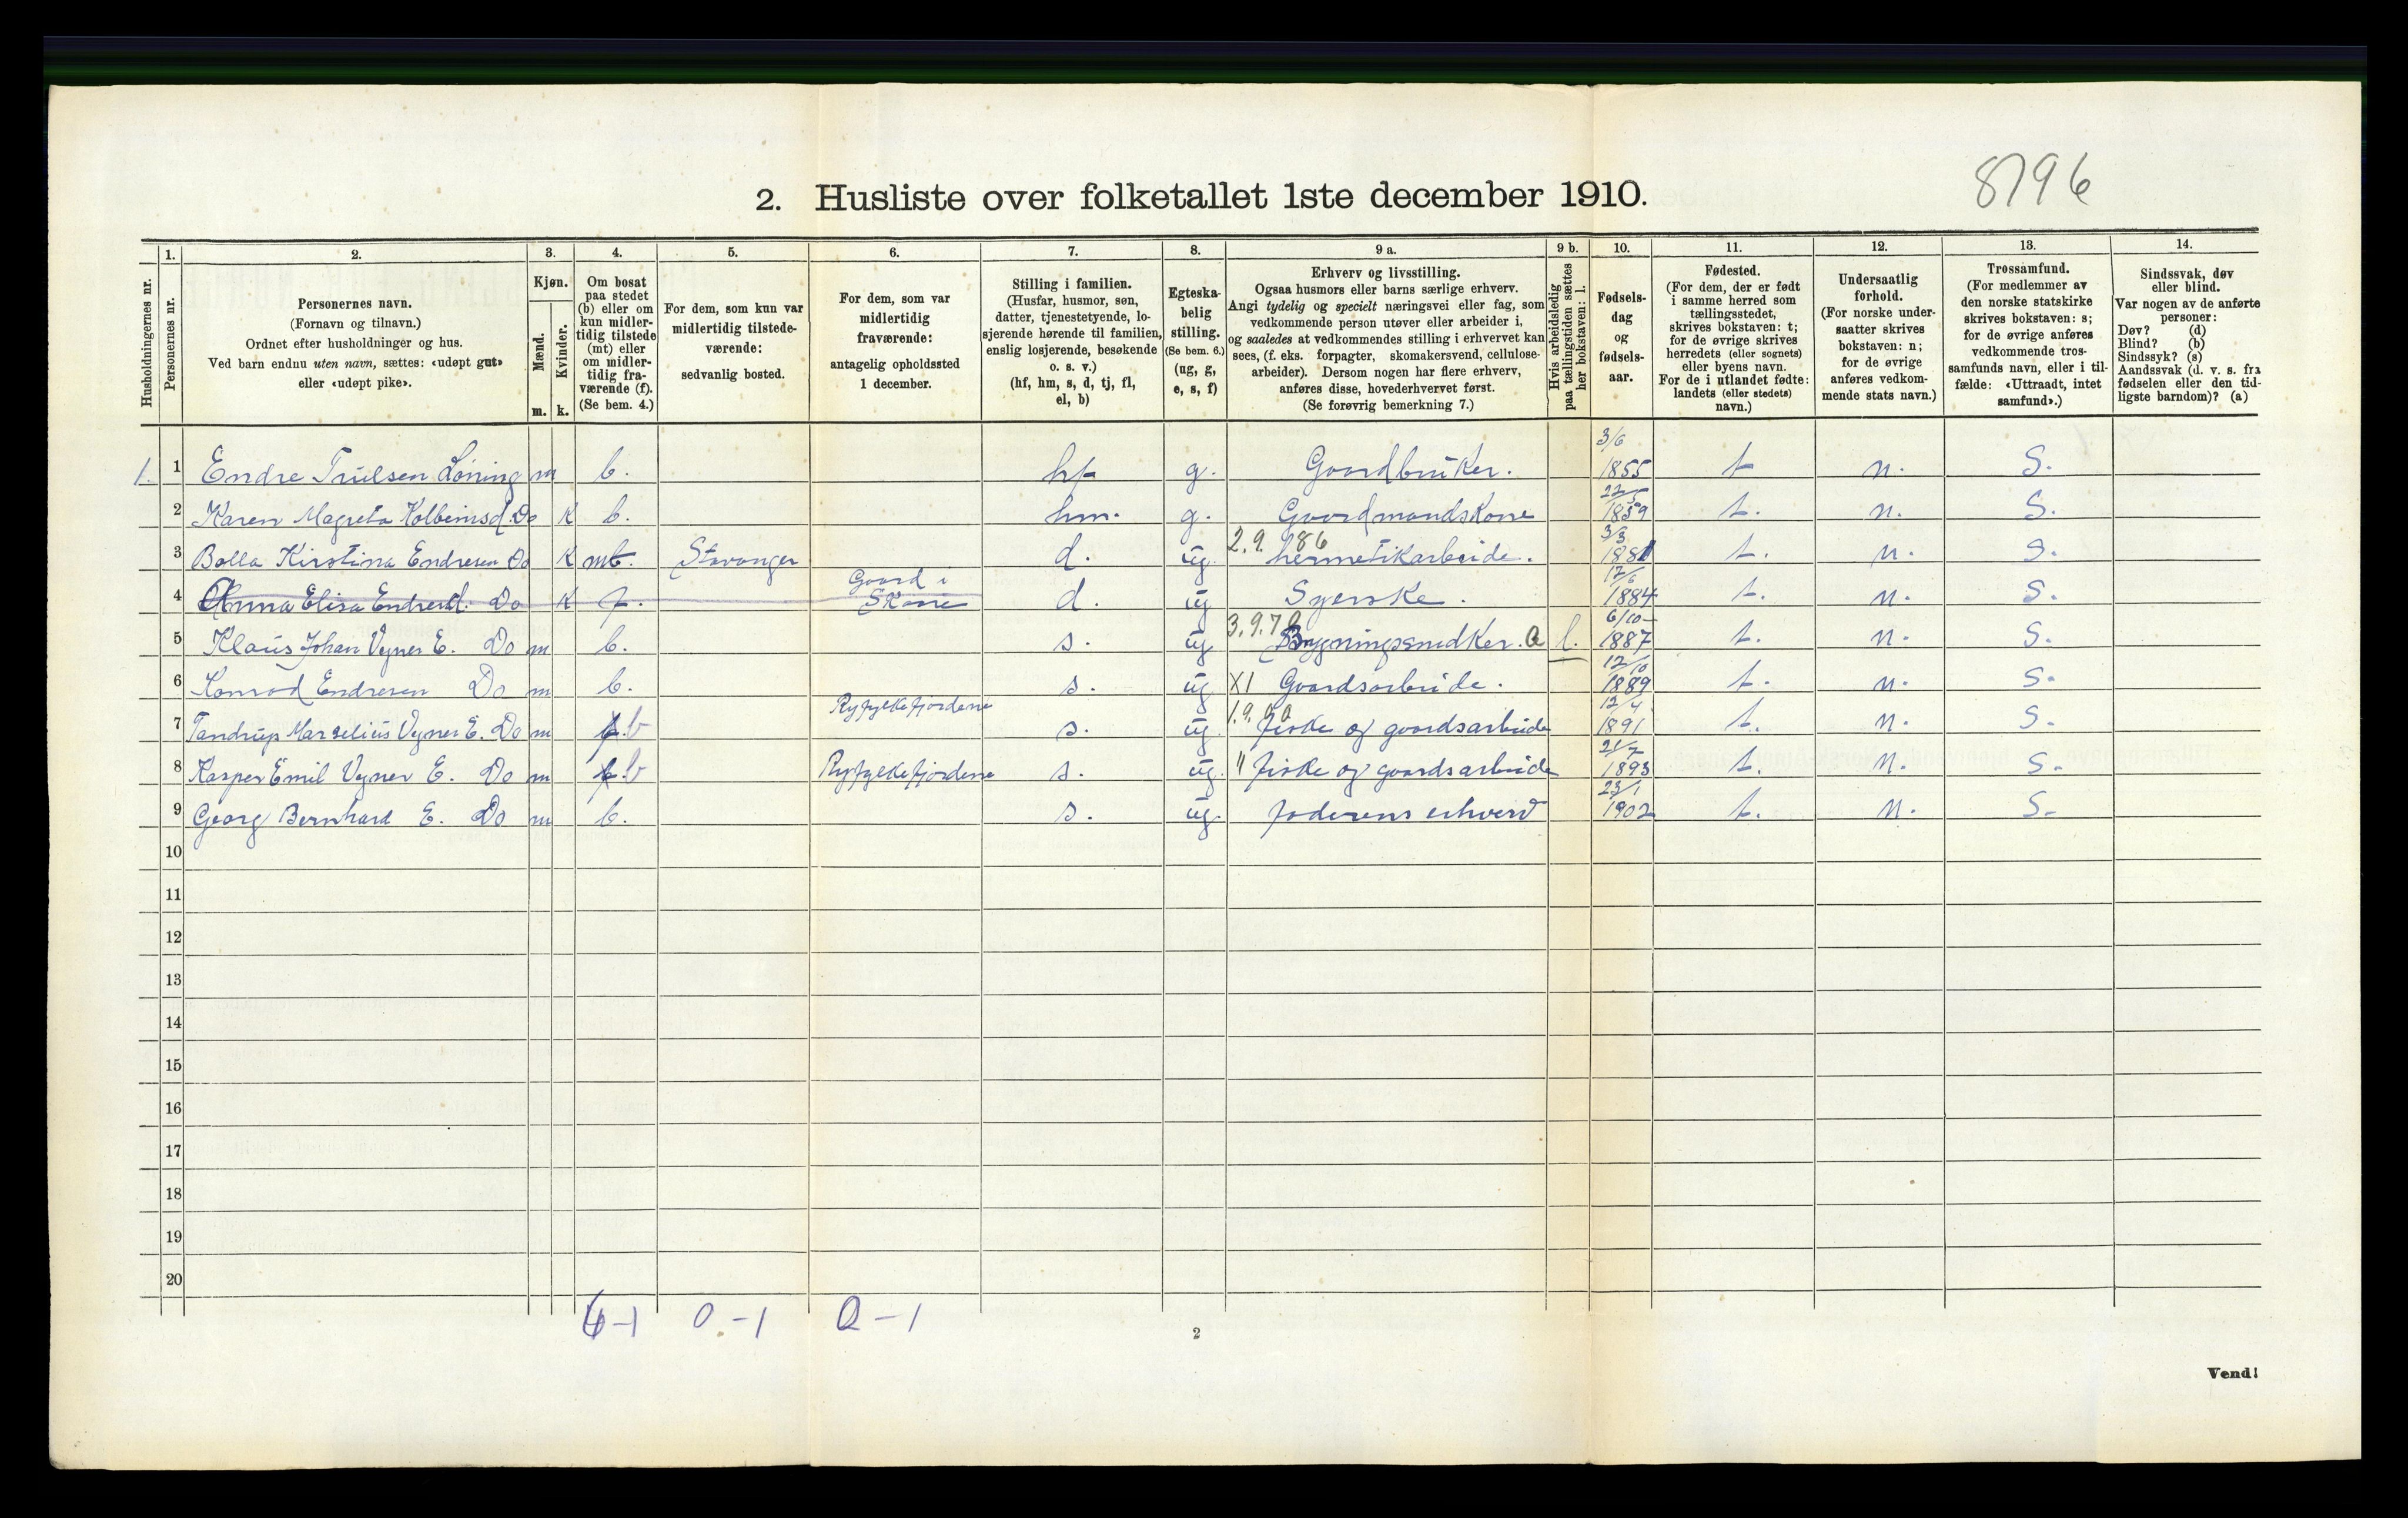 8796
2. Husliste over folketallet 1ste december 1910.
1. 2. 3. 4. 5. 6. 7. 8. 9 a. 9 b. 10. 11. 12. 13. 14.
Husholdningernes nr.
Personernes nr.
Personernes navn.
(Fornavn og tilnavn.)
Ordnet efter husholdninger og hus.
Ved barn endnu uten navn, sættes: «udøpt gut»
eller «udøpt pike».
Kjøn.
Mænd.
Kvinder.
m. k.
Om bosat
paa stedet
(b) eller om
kun midler-
tidig tilstede
(mt) eller
om midler-
tidig fra-
værende (f).
(Se bem. 4.)
For dem, som kun var
midlertidig tilstede-
værende:
sedvanlig bosted.
For dem, som var
midlertidig
fraværende:
antagelig opholdssted
1 december.
Stilling i familien.
(Husfar, husmor, søn,
datter, tjenestetyende, lo-
sjerende hørende til familien,
enslig losjerende, besøkende
o. s. v.)
(hf, hm, s, d, tj, fl,
el, b)
Egteska-
belig
stilling.
(Se bem. 6.)
(ug, g,
e, s, f)
Erhverv og livsstilling.
Ogsaa husmors eller barns særlige erhverv.
Angi tydelig og specielt næringsvei eller fag, som
vedkommende person utøver eller arbeider i,
og saaledes at vedkommendes stilling i erhvervet kan
sees, (f. eks. forpagter, skomakersvend, cellulose-
arbeider). Dersom nogen har flere erhverv,
anføres disse, hovederhvervet først.
(Se forøvrig bemerkning 7.)
Hvis arbeidsledig
paa tællingstiden sættes
her bokstaven: l.
Fødsels-
dag
og
fødsels-
aar.
Fødested.
(For dem, der er født
i samme herred som
tællingsstedet,
skrives bokstaven: t;
for de øvrige skrives
herredets (eller sognets)
eller byens navn.
For de i utlandet fødte:
landets (eller stedets)
navn.)
Undersaatlig
forhold.
(For norske under-
saatter skrives
bokstaven: n;
for de øvrige
anføres vedkom-
mende stats navn.)
Trossamfund.
(For medlemmer av
den norske statskirke
skrives bokstaven: s;
for de øvrige anføres
vedkommende tros-
samfunds navn, eller i til-
fælde: «Uttraadt, intet
samfund».)
Sindssvak, døv
eller blind.
Var nogen av de anførte
personer:
Døv? (d)
Blind? (b)
Sindssyk? (s)
Aandssvak (d. v. s. fra
fødselen eller den tid-
ligste barndom)? (a)
1. 1 Endre Trulsen Løning m b. hf g. Gaardbruker. 3/6 1855 t n. S.
2 Karen Magreta Kolbeinsd. Do K b. hm. g. Gaardmandskone 22/5 1859 t. n. S.
3 Bolla Kirstina Endresen Do K mt. Stavanger d. ug. 2.9.186 hermetikarbeide. 3/3 1881 t. n. S.
4 Anna Elisa Endresd. Do K f. Gaard i Skåne d. ug Syerske. 17/6 1884 t. n. S.
5 Klaus Johan Vegner E. Do m b. s. ug 3.9.7 Bygningssnedker. a l. 6/10 1887 t. n. S.
6 Konrad Endresen Do m b. s. ug XI Gaardsarbeide. 12/10 1889 t. n. S.
7 Tandrup Marselius Vegner E. Do m b Ryfylkefjordene s. ug. 1.9. fiske og gaardsarbeide 12/4 1891 t. n. S.
8 Kasper Emil Vegner E. Do m b Ryfylkefjordene s. ug. " fiske og gaardsarbeide 21/7 1893 t. n. S.
9 Georg Bernhard E. Do m b. s. ug. faderens erhverv 23/1 1902 t. n. S.
10
11
12
13
14
15
16
17
18
19
20
6-1 0-1 0-1
2
Vend!